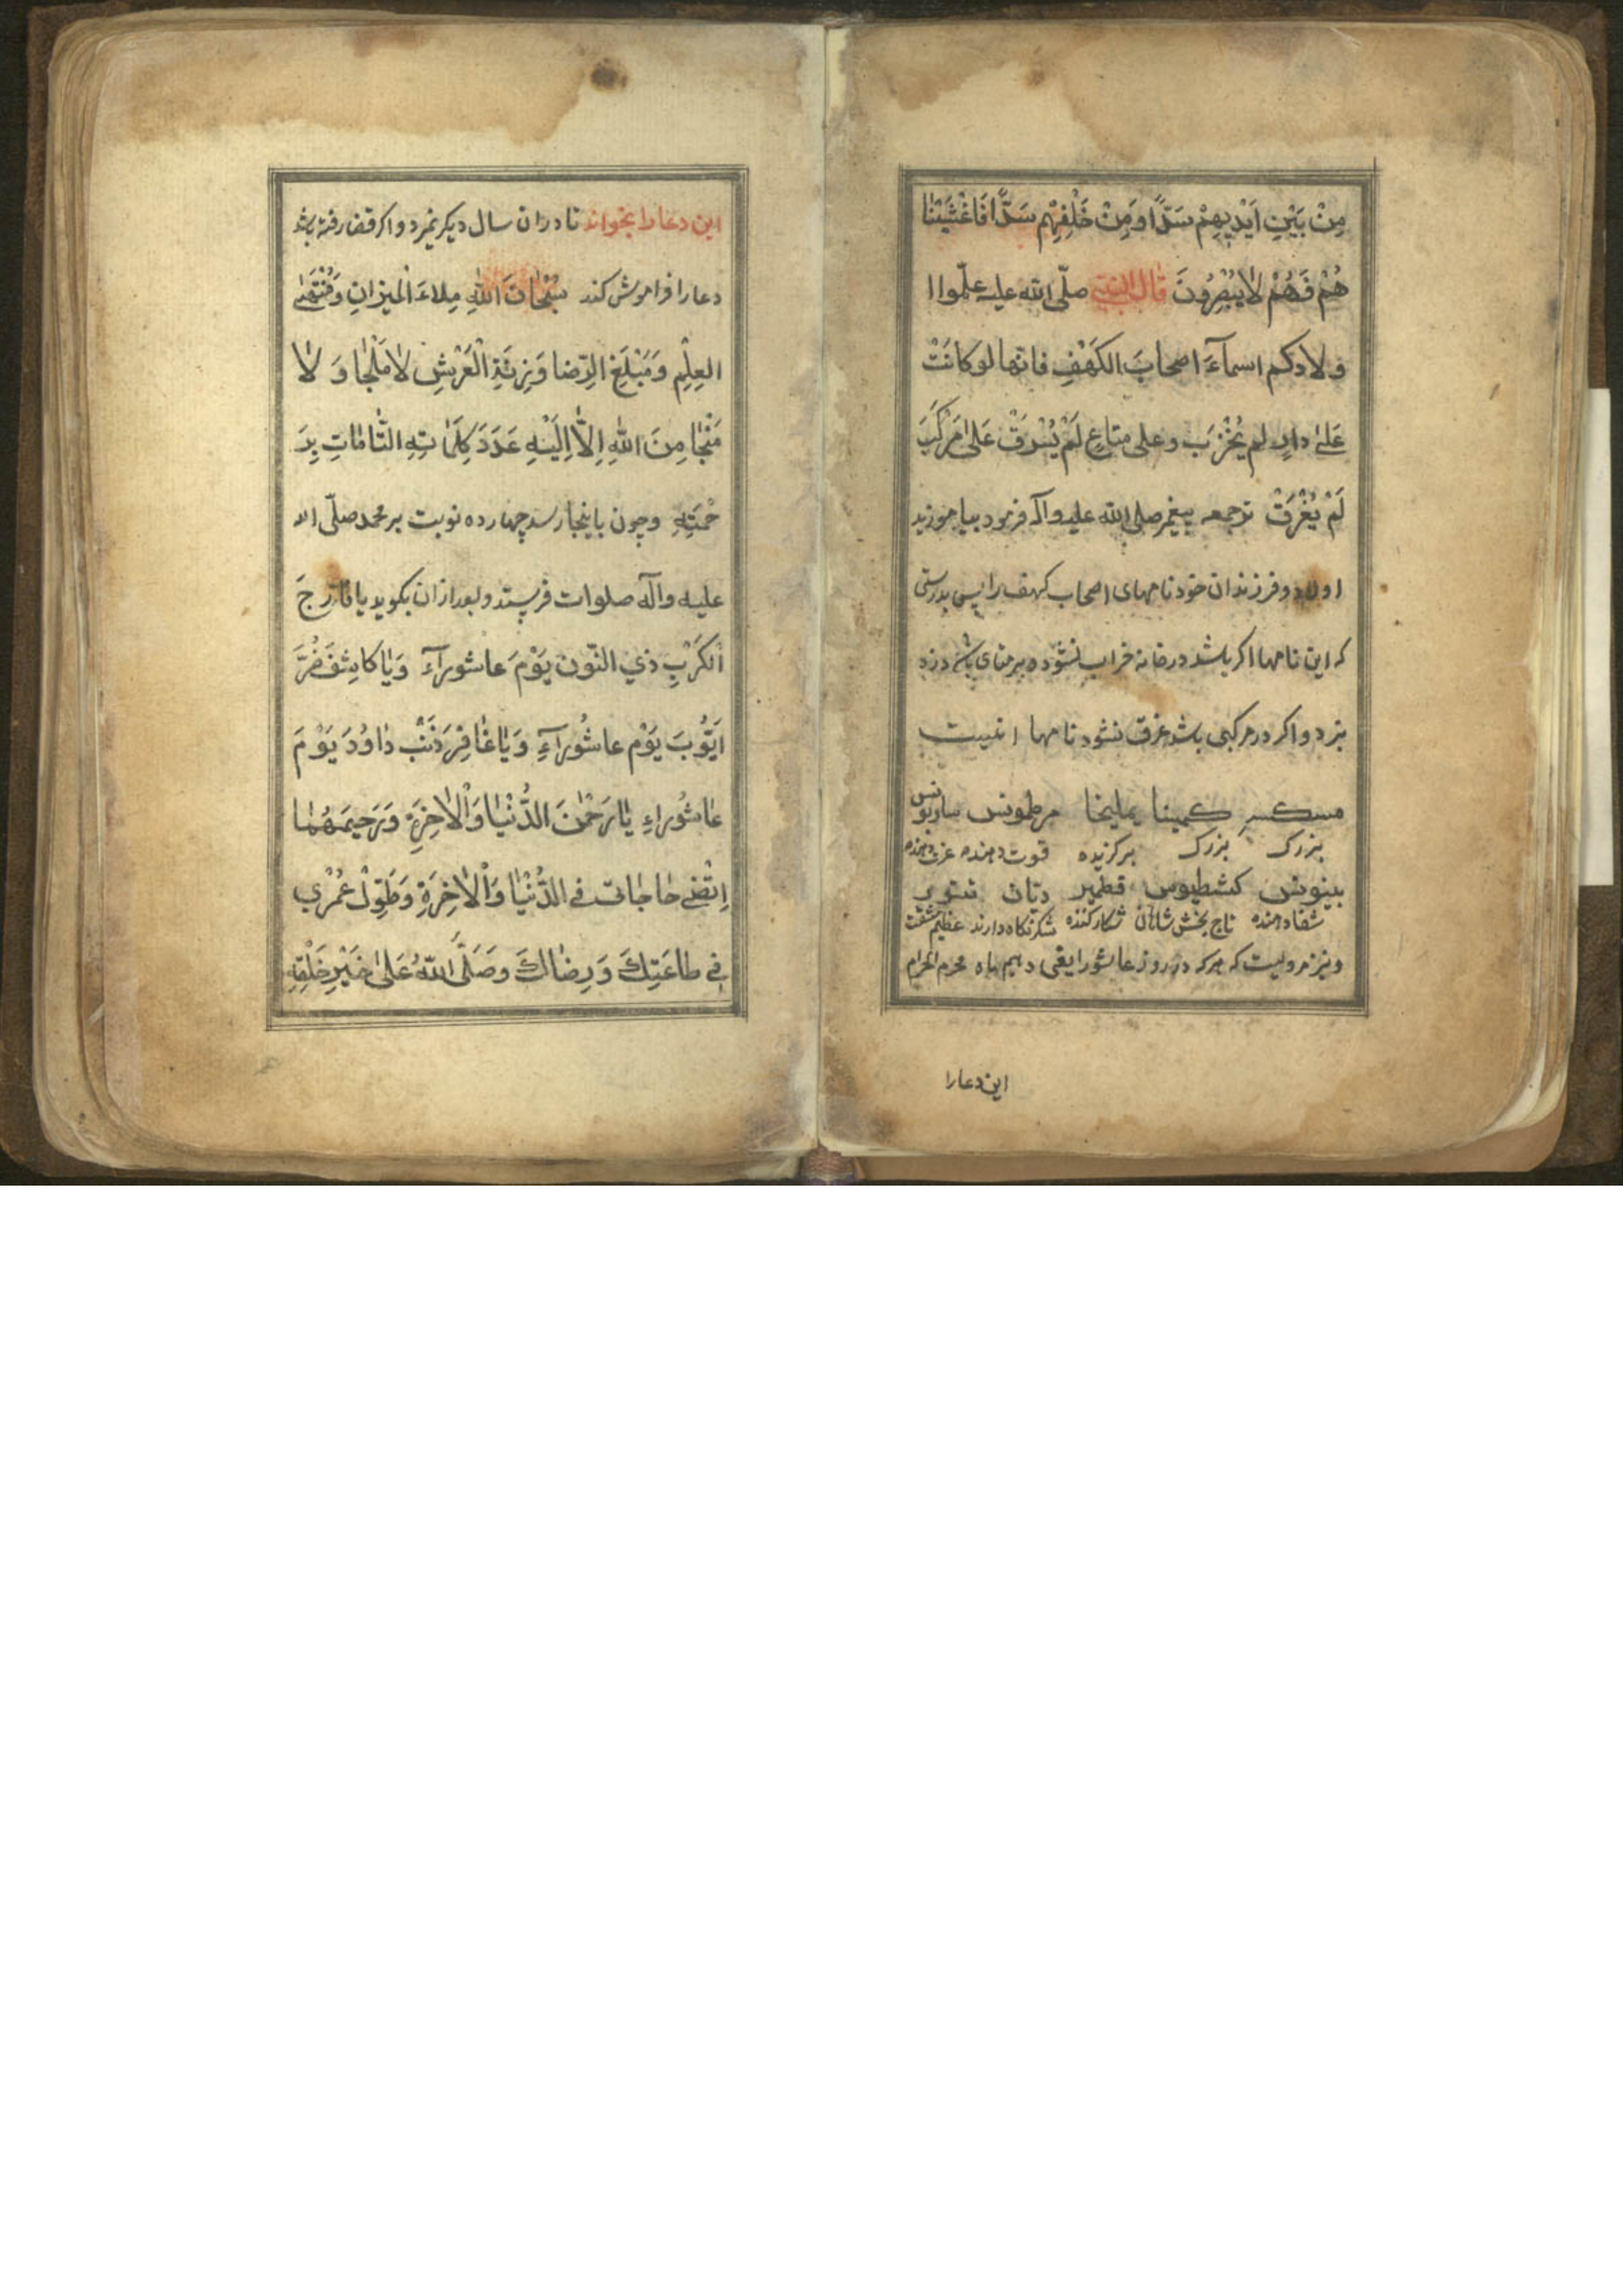 مِنْ بَيْنِ اَيْدِيهِمْ سَدًّا وَمِنْ خَلْفِهِم سَدًّا فَاَغْشَيْنَا
هُمْ فَهُمْ لاٰيُبْصِرُونَ قال النبي صلّى الله عليه علّموا ا
ولادكم اسمآءَ اصحابَ الكَهْفِ فانّها لو كانَتْ
عَلىٰ دارٍ لم يُخْرَبْ وعلى متاعٍ لَمْ يُسْرَقْ عَلىٰ مَرْكَبَ
لَمْ يُغْرَقْ ترجمه پيغمبر صلى الله عليه وآله فرمود بياموزيد
اولاد و فرزندان خود نامهاى اصحاب كهف را پس بدرستى
كه اين نامها اكر باشد در خانه خراب نشود و بر متاى باشد دزد
نبرد و اكر در مركبى باشد غرق نشود نامها اينست
مسكسر كمينا يمليخا مرطونس ساربونس
بزرك بزرك بركزيده قوت دهنده عزت دهنده
بينونس كشطيوس قطمير ديان
شفا دهنده تاج بخش شاهان شكار كننده عظيم شفقت
و نيز مرويست كه هركه در روز عاشورا يعنى دهم ماه محرم الحرام
اين دعا را
اين دعا را بخواند تا در ان سال ديكر نميرد و اكر قضا رفته باشد
دعا را فراموش كند سُبْحٰانَ اللهِ مِلاءَ الْميزانِ وَمُنْتَهىٰ
العِلْمِ وَمَبْلَغَ الرِّضا وَزِنَةِ الْعَرْشِ لاٰ مَلْجَا وَ لاٰ
مَنْجٰا مِنَ اللهِ اِلاّٰ اِلَيْهِ عَدَدَ كَلِمٰاتِهِ التّٰامّٰاتِ بِرَ
حْمَتِهِ و چون باينجا رسد چهارده نوبت بر محمد صلّى الله
عليه وآله صلوات فرستد و بعد از ان بكويد يا فٰارِجَ
الْكَرْبِ ذي النّون يَوْمَ عاشورآءَ وَيٰا كاشِفَ ضُرَّ
اَيّوُبَ يَوْم عاشُورآءِ وَيٰا غٰافِرَ ذَنْبِ دٰاوُدَ يَوْمَ
عٰاشُوراءِ يٰا رَحْمٰنَ الدُّنْيٰا وَالْاٰخِرَةِ وَرَحيمَهُمٰا
اِقْضِ حٰاجٰاتى فى الدُّنْيٰا وَالْاٰخِرَةِ وَطَوِّلْ عُمْري
في طاعَتِكَ وَرِضٰاكَ وَصَلَّى اللهُ عَلىٰ خَيْرِ خَلْقِهِ